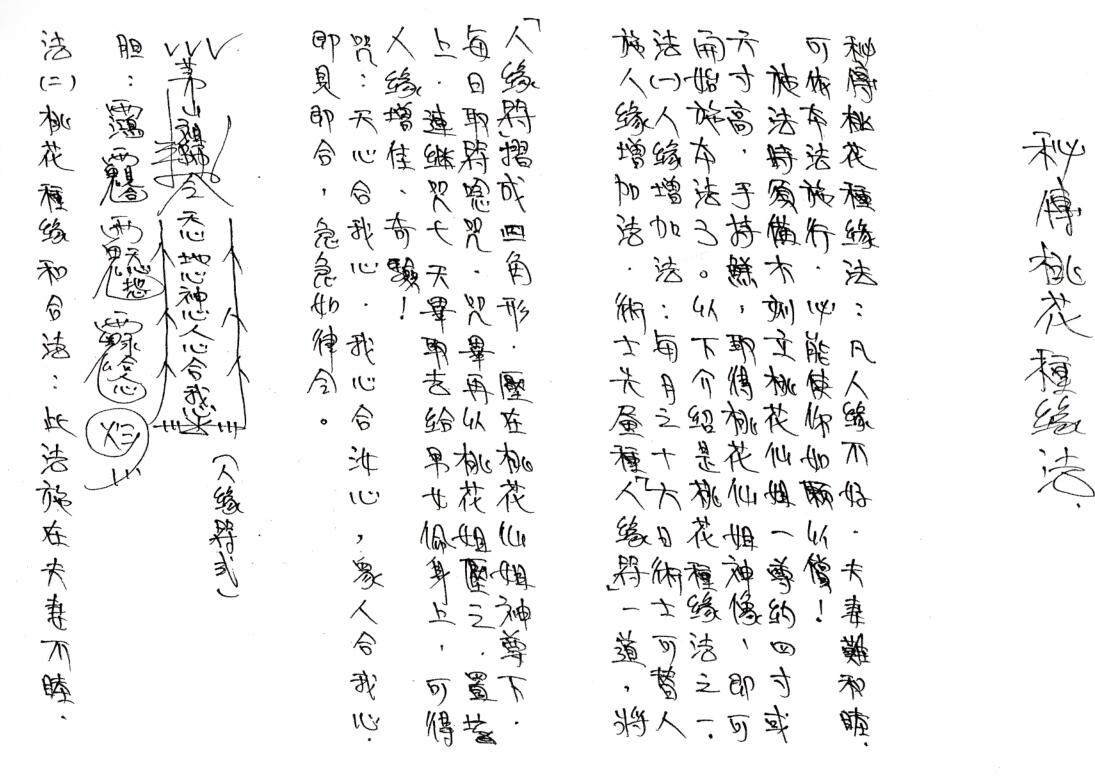 秘傳桃花種緣法．
秘傳桃花種緣法：凡人緣不好．夫妻難和睦．
可依本法施行．必能使你如願以償！
施法時須備木刻立桃花仙姐一尊約四寸或
六寸高．手持　，取得桃花仙姐神像、即可
開始施本法了。以下介紹是桃花種緣法之一．
法(一)人緣增加法：每月之十六日術士可替人
施人緣增加法．術士先畫種「人緣符」一道，將
「人緣符」摺成四角形．壓在桃花仙姐神尊下．
每日取符唸咒．咒畢再以桃花姐壓之．置
上．連繼咒七天畢取去給男女佩身上，可得
人緣增佳、奇驗！
咒：天心合我心．我心合汝心，眾人合我心．
即見即合，急急如律令。
(人緣符式)
茅山 令天心地心神心人心合我心
胆：
法(二)桃花種緣和合法：此法施在夫妻不睦．